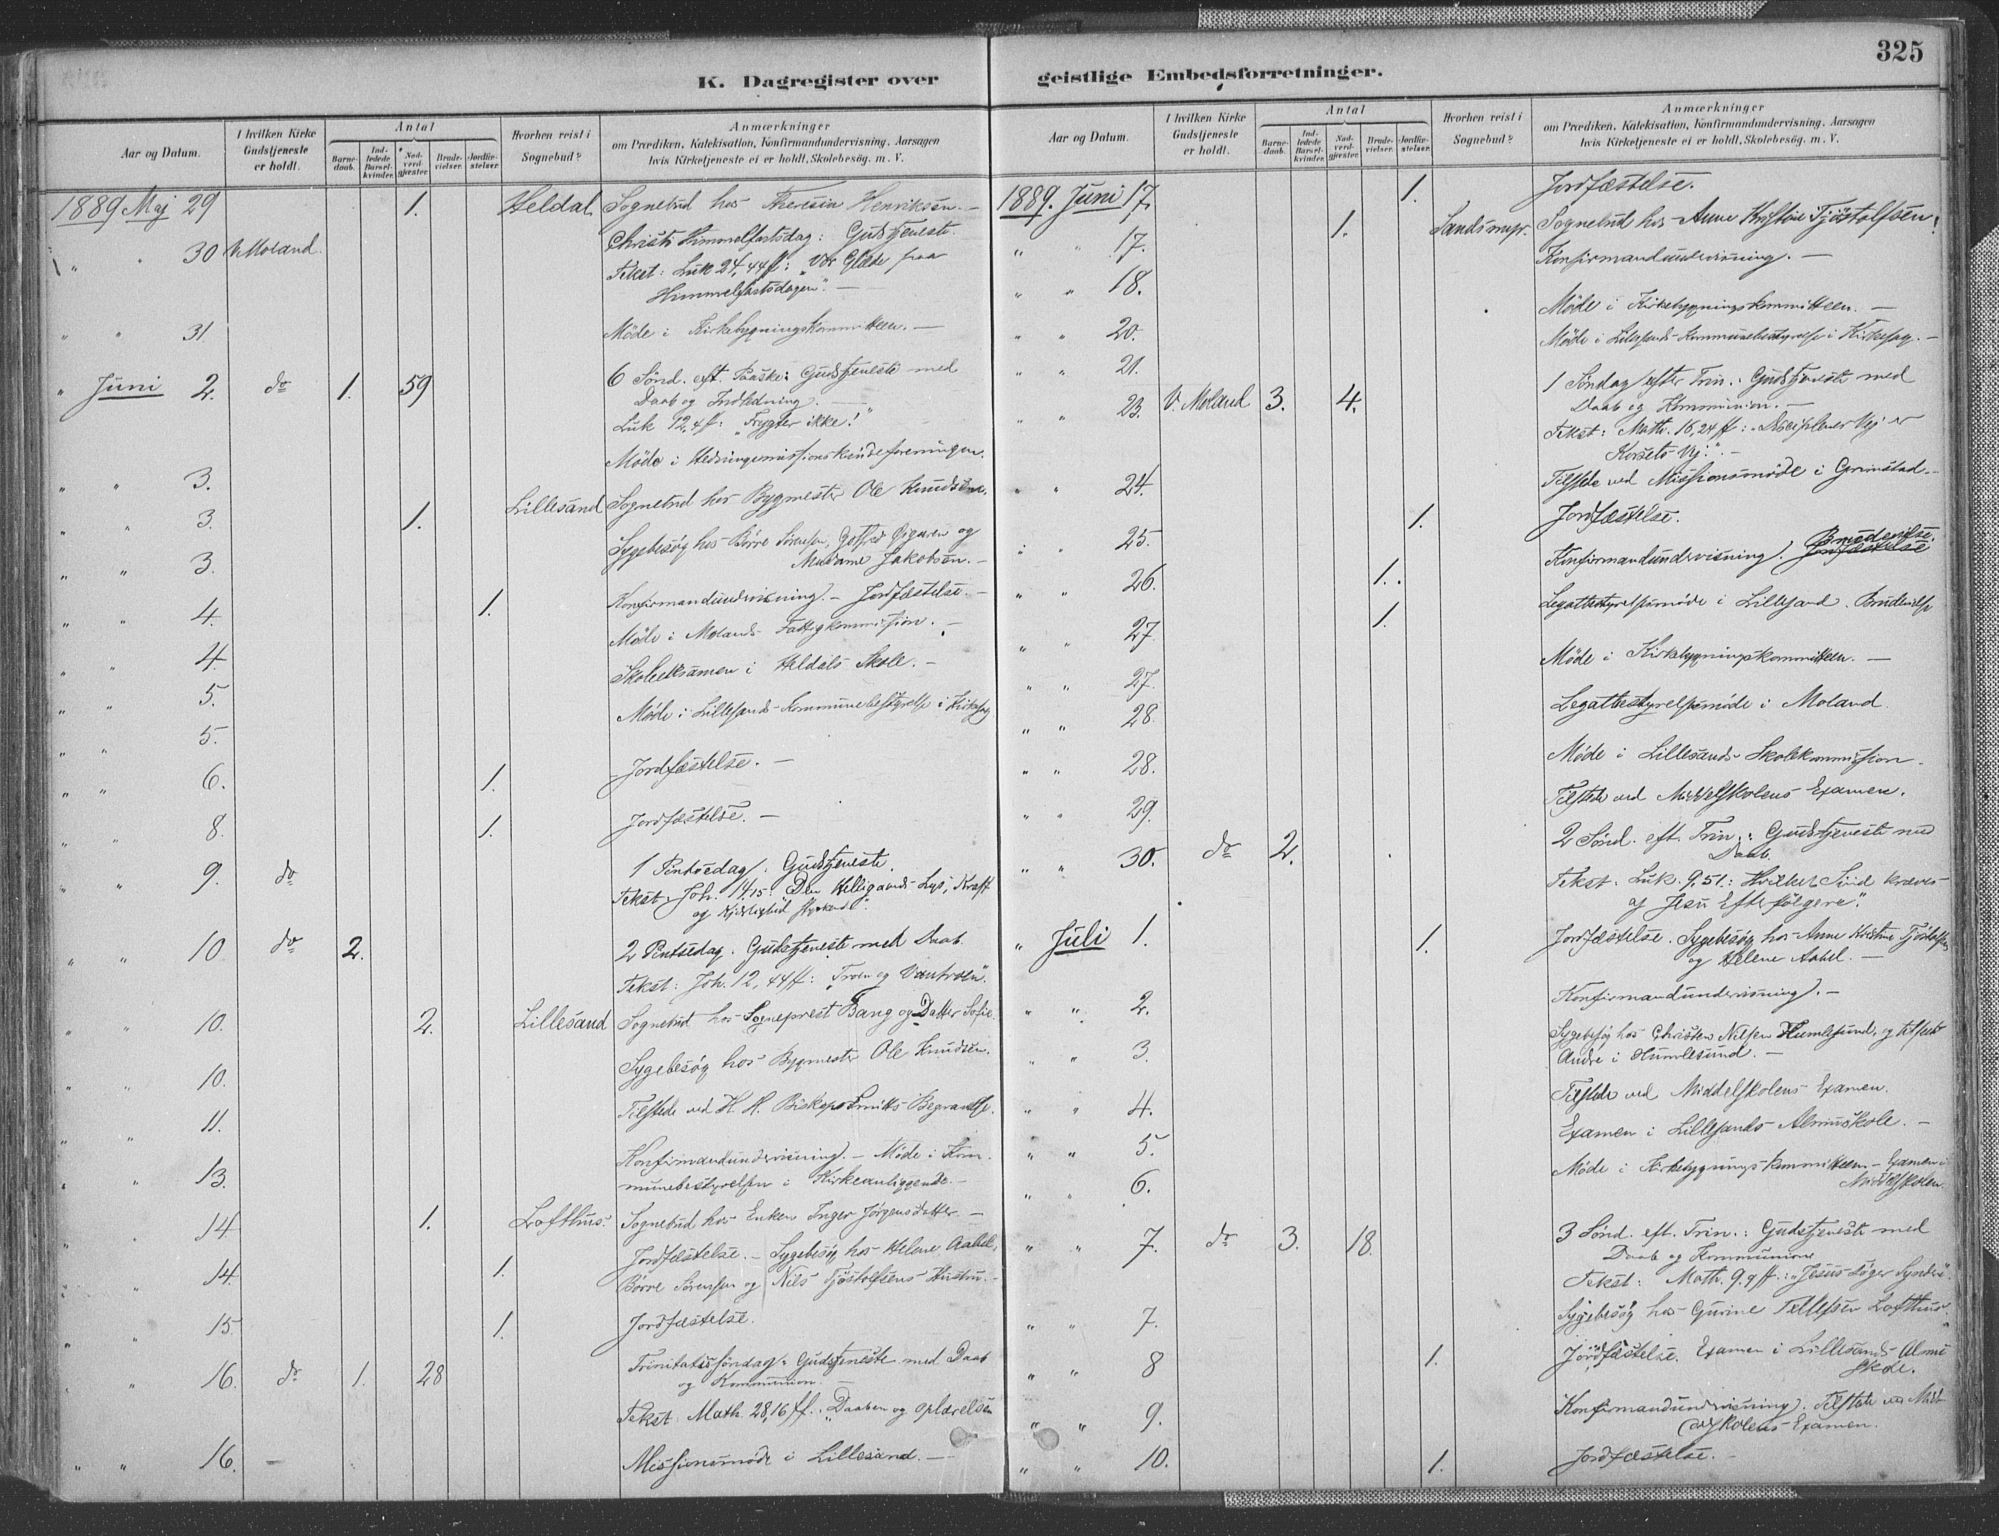 325
K. Dagregister over geistlige Embedsforretninger.
Aar og Datum. I hvilken Kirke Gudstjeneste er holdt. Antal Barnedaab. Indledede Barselkvinder. Nadverdgjæster. Brudevielser. Jordfæstelser. Hvorhen reist i Sognebud? Anmærkninger om Prædiken, Katekisation, Konfirmandundervisning, Aarsagen hvis Kirketjeneste ei er holdt, Skolebesög. m. V.
1889 Maj 29 1. Heldal Sognebud hos Theresia Henriksen. —
" " 30 V. Moland. Christi Himmelfartsdag: Gudstjeneste.
Tekst: Luk 24,44 ff: "Vor Glæde paa
Himmelfartsdagen". —
" " 31 Møde i Kirkebygningskommitteen. —
" Juni 2. do 1. 59 6 Sønd. eft. Paaske: Gudstjeneste med
Daab og Indledning. —
Luk 12,4 ff: "Frygter ikke!"
" " 3. Møde i Hedningemissionskvindeforeningen.
" " 3. 1. Lillesand Sognebud hos Bygmester Ole Knudsen.
" " 3. Sygebesøg hos Børre Sørensen, og
Madame Jakobsen. —
" " 4. 1. Konfirmandundervisning. — Jordfæstelse. —
" " 4 Møde i Molands Fattigkommission. —
" " 5. Skoleeksamen i Heldals Skole. —
" " 5. Møde i Lillesands Kommunebestyrelse i Kirkesag
" " 6. 1. Jordfæstelse. —
" " 8. 1. Jordfæstelse. —
" " 9. do 1 Pintsedag. Gudstjeneste.
Tekst: Joh. 14,15: Den Helligaands Lys, Kraft
og Kjærlighed
" " 10 do 2. 2 Pintsedag. Gudstjeneste med Daab.
Tekst: Joh. 12,44 ff: "Troen og Vantroen".
" " 10. 2. Lillesand Sognebud hos Sogneprest Bang og Datter Sofie.
" " 10. Sygebesøg hos Bygmester Ole Knudsen.
" " 11. Tilstede ved H. H. Biskop Smitts Begravelse.
" " 13. Konfirmandundervisning. — Møde i Kommunebestyrelsen i Kirkeanliggende. —
" " 14 1. Lofthus. Sognebud hos Enken Inger Jørgensdatter —
" " 14. 1. Jordfæstelse. — Sygebesøg hos Helene Aabel,
Børre Sørensen og Nils Tjøstolfsens Hustru. —
" " 15. 1. Jordfæstelse.
" " 16. do 1. 28 Trinitatissøndag: Gudstjeneste med Daab
og Kommunion. —
Tekst: Math. 28,16 ff. "Daaben og Oplærelsen
" " 16. — Missionsmøde i Lillesand. —
Aar og Datum. I hvilken Kirke Gudstjeneste er holdt. Antal Barnedaab. Indledede Barselkvinder. Nadverdgjæster. Brudevielser. Jordfæstelser. Hvorhen reist i Sognebud? Anmærkninger om Prædiken, Katekisation, Konfirmandundervisning, Aarsagen hvis Kirketjeneste ei er holdt, Skolebesög. m. V.
1889. Juni 17. 1. Jordfæstelse.
" " 17. 1. Sandsmyr. Sognebud hos Anne Kristine Tjøstolfsen.
" " 18. Konfirmandundervisning. —
" " 20. Møde i Kirkebygningskommitteen. —
" " 21. Møde i Lillesands Kommunebestyrelse i Kirkesag. —
" " 23. V. Moland 3. 4. 1 Søndag efter Trin.: Gudstjeneste med
Daab og Kommunion. —
Tekst: Math. 16,24 ff: "Disciplenes Vej er
Korsets Vej". —
" " 24. Tilstede ved Missionsmøde i Grimstad. —
" " 25. 1. Jordfæstelse.
" " 26. 1. Konfirmandundervisning. Jordfæstelse Brudevielse.
" " 27 1. Legatbestyrelsesmøde i Lillesand. Brudevielse
" " 27. Møde i Kirkebygningskommitteen. —
" " 28 Legatbestyrelsesmøde i Moland.
" " 28. Møde i Lillesands Skolekommission.
" " 29. Tilstede ved Middelskolens Examen.
" " 30. do 2. 2 Sønd. eft. Trin.: Gudstjeneste med
Daab.
Tekst: Luk. 9,51: Hvilket Sind kræves
af Jesu Efterfølgere".
" Juli 1. 1. Jordfæstelse. Sygebesøg hos Anne Kristine Tjøstolfsen
og Helene Aabel. —
" " 2. Konfirmandundervisning. —
" " 3. Sygebesøg hos Christen Nilsen Humlesund, og
Andre i Humlesund. —
" " 4. Tilstede ved Middelskolens Examen.
" " 5. Examen i Lillesands Almueskole. —
" " 6. Møde i Kirkebygningskommitteen — Examen i
Middelskolen.
" " 7. do 3. 18. 3 Sønd. eft. Trin.: Gudstjeneste med
Daab og Kommunion
Tekst: Math. 9,9 ff.: "Jesus søger Syndere".
" " 7. Sygebesøg hos Gurine Tellefsen Lofthus.
" " 8 1. Jordfæstelse. Examen i Lillesands Almueskole.
" " 9. Konfirmandundervisning. Tilstede ved Middelskolens Examen.
" " 10. 1. Jordfæstelse. —